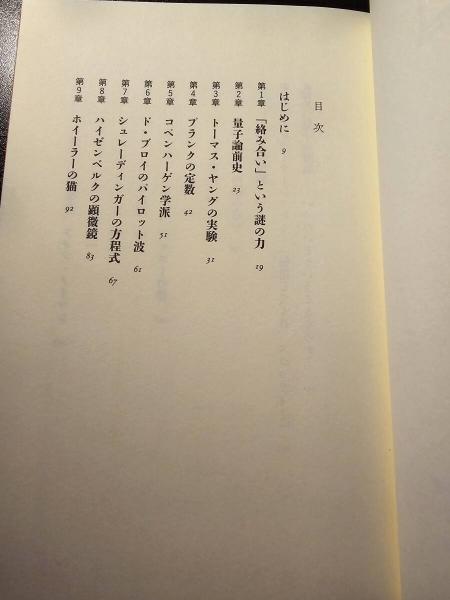 目次
はじめに 9
第1章 「絡み合い」という謎の力 19
第2章 量子論前史 23
第3章 トーマス・ヤングの実験 31
第4章 プランクの定数 42
第5章 コペンハーゲン学派 51
第6章 ド・ブロイのパイロット波 61
第7章 シュレーディンガーの方程式 67
第8章 ハイゼンベルクの顕微鏡 83
第9章 ホイーラーの猫 92